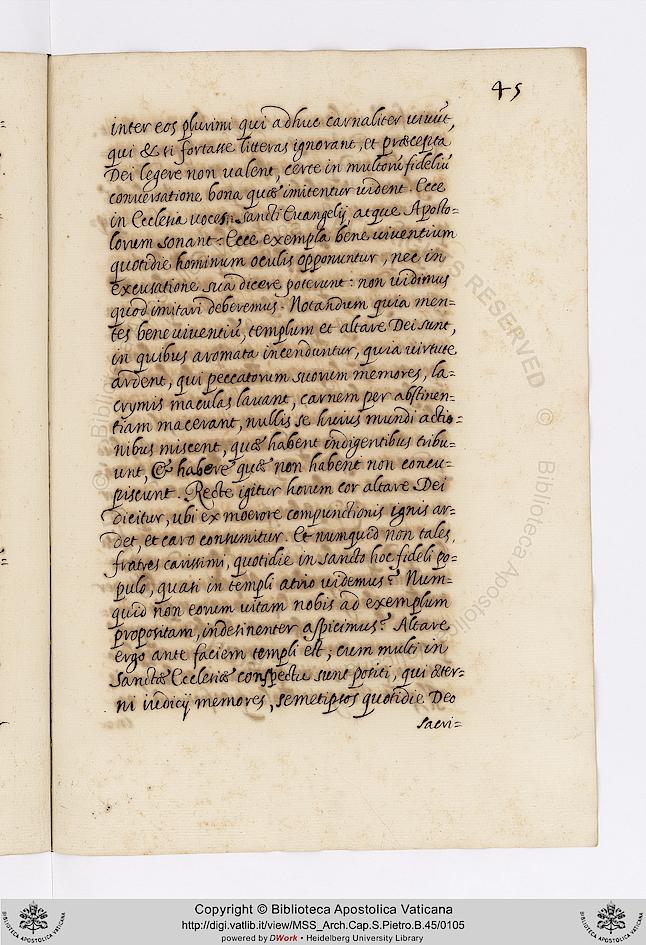 45
inter eos plurimi qui adhuc carnaliter uiuūt,
qui & si fortasse litteras ignorant, et præcepta
Dei legere non ualent, certe in multorū fideliū
conuersatione bona quæ imitentur uident. Ecce
in Ecclesia uoces sancti Euangelij, atque Aposto=
lorum sonant: Ecce exempla bene uiuentium
quotidie hominum oculis opponuntur, nec in
excusatione sua dicere poterunt: non uidimus
quod imitari deberemus. Notandum quia men=
tes bene uiuentiū, templum et altare Dei sunt,
in quibus aromata incenduntur, quia uirtute
ardent, qui peccatorum suorum memores, la=
crymis maculas lauant, carnem per abstinen=
tiam macerant, nullis se huius mundi actio=
nibus miscent, quæ habent indigentibus tribu=
unt, & habere quæ non habent non concu=
piscunt. Recte igitur horum cor altare Dei
dicitur, ubi ex moerore compunctionis ignis ar=
det, et caro consumitur. Et numquid non tales,
fratres carissimi, quotidie in sancto hoc fideli po=
pulo, quasi in templi atrio uidemus? Num=
quid non eorum uitam nobis ad exemplum
propositam, indesinenter aspicimus? Altare
ergo ante faciem templi est; cum multi in
sanctæ Ecclesiæ conspectu sunt positi, qui æter=
ni iudicij memores, semetipsos quotidie Deo
sacri=
© Biblioteca Apostolica
RIGHTS RESERVED
© Biblioteca Apostolica
Copyright © Biblioteca Apostolica Vaticana
http://digi.vatlib.it/view/MSS_Arch.Cap.S.Pietro.B.45/0105
powered by DWork • Heidelberg University Library